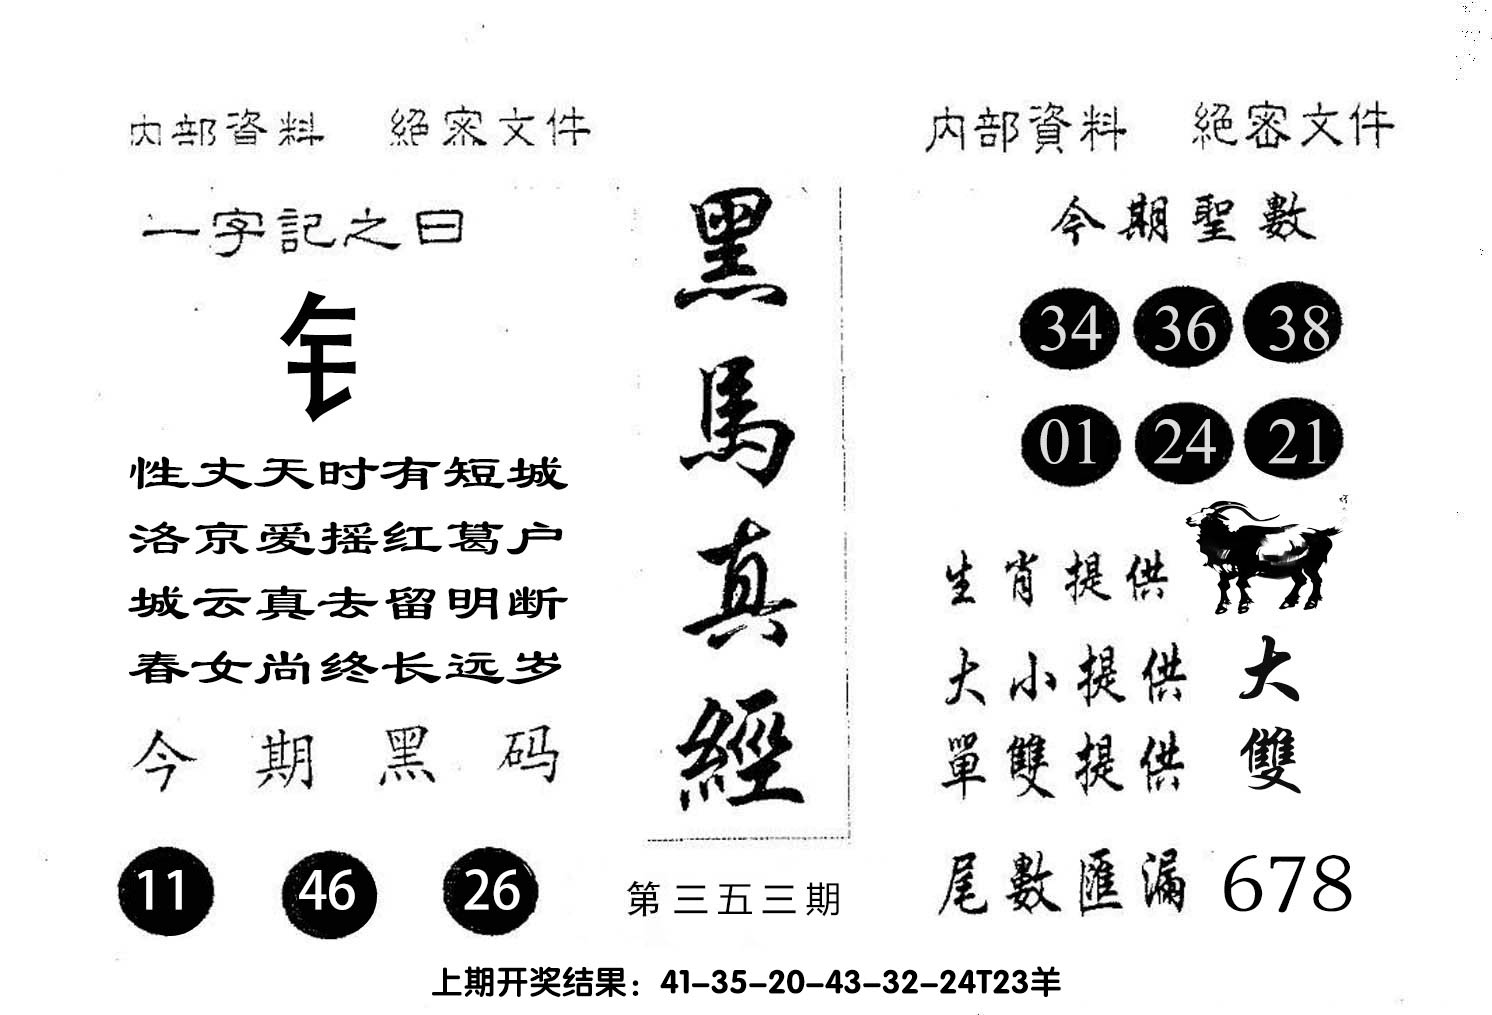 内部資料 絕密文件
一字記之曰
性丈天时有短城
洛京爱摇红葛户
城云真去留明断
春女尚终长远岁
今期黑码
11 46 26
黑馬真經
第三五三期
内部資料 絕密文件
今期聖數
34 36 38
01 24 21
生肖提供
大小提供 大
單雙提供 雙
尾數匯漏 678
上期开奖结果：41-35-20-43-32-24T23羊